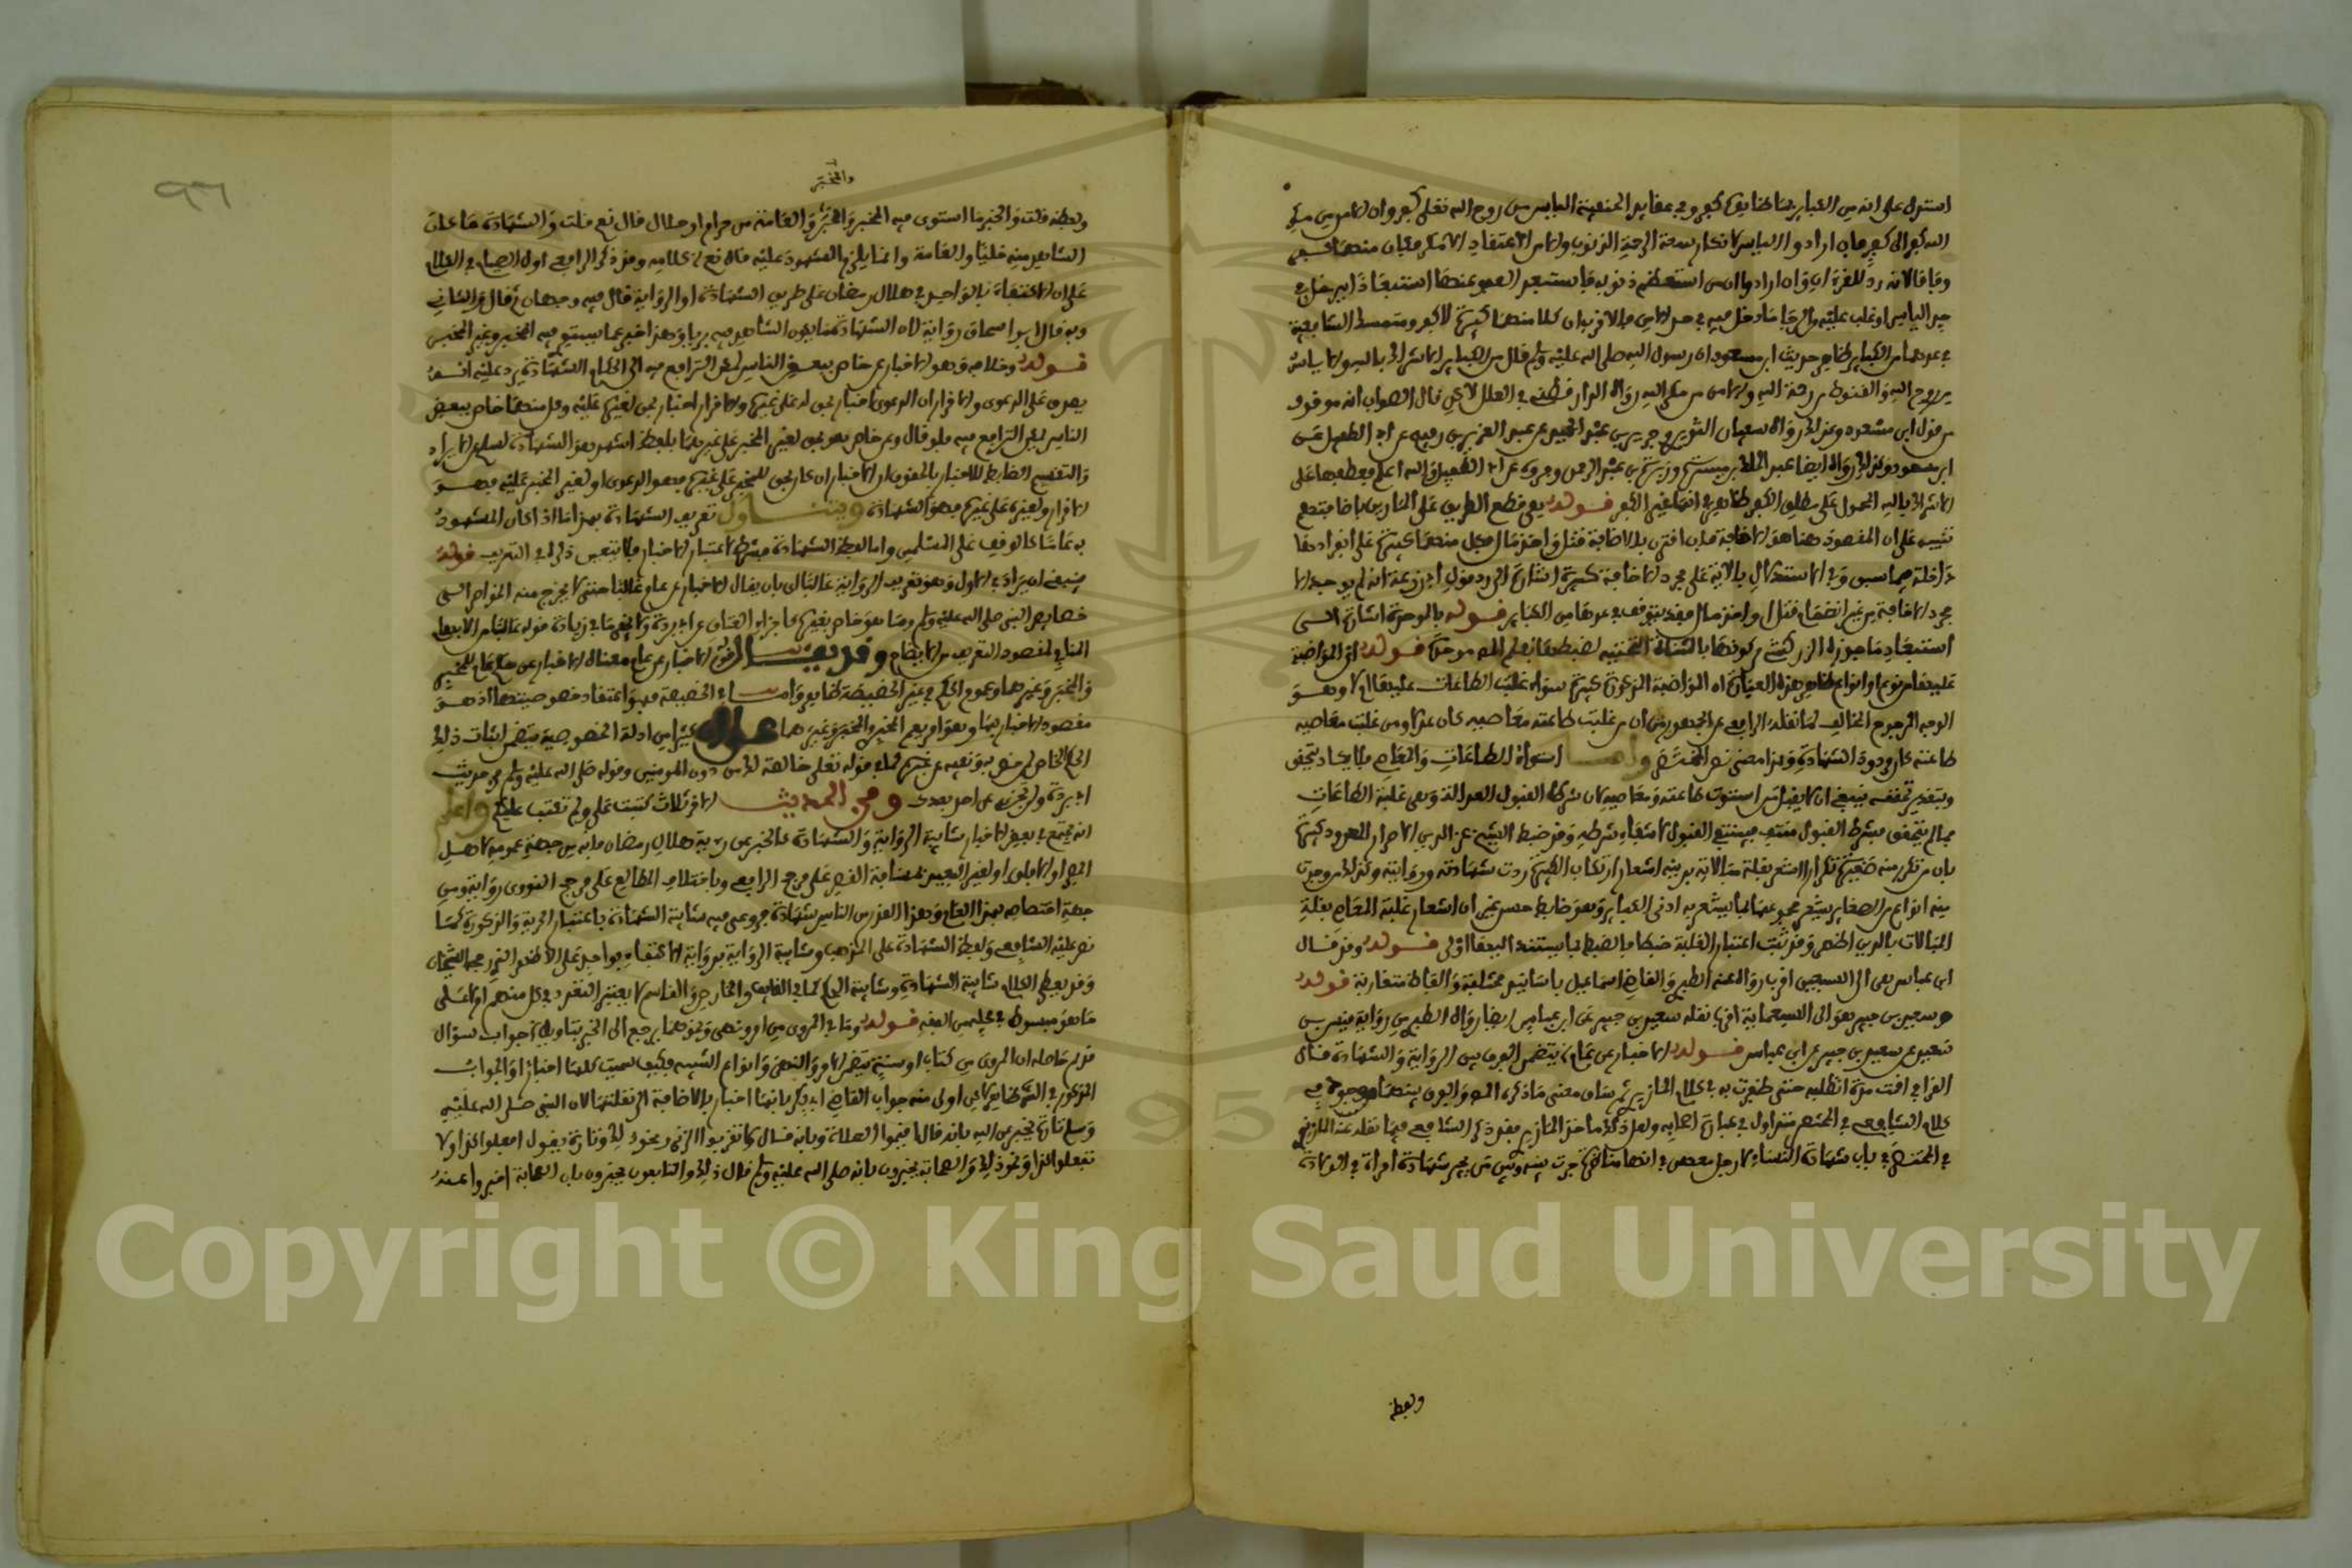 استدل على انه من الكبائر بما ظاهره كفر وفي عقايد الحنفية الياس من روح الله تعلى كفر وان الامن من مكر
الله كفر الى كفر فان ارادوا الياس لانكار سعة الرحمة الذنوب والامن الاعتقاد ان لا مكر فكل منهما كفر
وفاقا لانه رد للقرءان وان ارادوا ان من استعظم ذنوبه فاستبعد العفو عنها استبعادا يدخل في
حد الياس او غلب عليه والرجا ما دخل به في حد الامن فالاقرب ان كلا منهما كبيرة لا كفر ومتمسك الشافعية
في عدهما من الكبائر ظاهر حديث ابن مسعود ان رسول الله صلى الله عليه وسلم قال من الكبائر الاشراك بالله والاياس
من روح الله والقنوط من رحمة الله والامن من مكر الله رواه الدارقطني في العلل لاكن قال الصواب انه موقوف
من قول ابن مسعود وعزاه رواه سفيان الثوري وجرير بن عبد الحميد عن عبد العزيز بن رفيع عن ابي الطفيل عن
ابن مسعود وكذلك رواه ايضا عبد الملك بن ميسرة وبرة بن عبد الرحمن وغيره عن ابي الطفيل والله اعلم فعطفهما على
الاشراك بالله المحمول على مطلق الكفر ظاهر في انهما غير الكفر قوله يعني قطع الطريق على المارين باخافتهم
تنبيه على ان المقصود هنا هو الاخافة فان اقترن بالاخافة قتل واخذ مال فكل منهما كبيرة على انفرادها
داخلة فيما سبق وفي الاستدلال بالاية على مجرد الاخافة كبيرة اشارة الى رد قول ابي زرعة انه لم يوجد الا
مجرد الاخافة من غير انضمام قتل واخذ مال فقد يتوقف في عدها من الكبائر قوله بالوحدة اشارة الى
استبعاد ما جوزه الزركشي من كونها بالمثناة التحتية لضبطها بقلم المصـ موحدة قوله اي المواظبة
عليها من نوع او انواع ظاهر هذه العبارة ان المواظبة المذكورة كبيرة سواء غلبت الطاعات عليها ام لا وهو
الوجه المرجوح المخالف لما نقله الرافعي عن الجمهور من ان من غلبت طاعته معاصيه كان عدلا ومن غلبت معاصيه
طاعته كان مردود الشهادة وهذا مقتضى نص المختصر واما استواء الطاعات والمعاصي فلا يكاد يتحقق
وبتقدير تحققه ينبغي ان لا يقبل من استوت طاعته ومعاصيه لان شرط القبول العدالة وهي غلبة الطاعات
فما لم يتحقق شرط القبول منتف فينتفي القبول لانتفاء شرطه وقد ضبط الشيخ عز الدين الاصرار المعدود كبيرة
بان تتكرر منه صغيرة تكرارا يشعر بقلة مبالاته بدينه اشعار ارتكاب الكبيرة ردت شهادته وروايته وكذلك لو وجدت
منه انواع من الصغاير يشعر مجموعها بما يشعر به ادنى الكباير وهو ضابط حسن غير ان اشعار غلبة المعاصي بقلة
المبالات بالدين اظهر وقد ثبت اعتبار الغلبة ضبطا فالضبط بما يستند اليها اولى قوله وقد قال
ابن عباس هي الى السبعين اقرب رواه عنه الطبري والقاضي اسماعيل باسانيد مختلفة والفاظ متقاربة قوله
وسعيد بن جبير هو الى السبعماية اقرب نقله سعيد بن جبير عن ابن عباس ايضا رواه الطبري من رواية قيس بن
سعد عن سعيد بن جبير عن ابن عباس قوله الاخبار عن عام الخ يتضمن الفرق بين الرواية والشهادة قال
القرافي اقمت مدة اتطلبه حتى ظفرت به في كلام المازري ثم ساق معنى ما ذكره المصـ والفرق بينهما موجود في
كلام الشافعي في المختصر متداول في عبارة اصحابه ولعل ذلك ماخذ المازري فقد ذكر الشافعي فيما نقله عنه المزني
في المختصر في باب شهادة النساء لا رجل معهن في اثناء مناظرة جرت بينه وبين من يجيز شهادة امراة في الولادة
ولفظه
والمخبر
ولفظه قلت والخبر ما استوى فيه المخبر والمخبر والعامة من حرام او حلال قال نعم قلت والشهادة ما كان
الشاهد منه خليا والعامة وانما يلزم المشهود عليه قال نعم انتهى كلامه وقد ذكر الرافعي اول الصيام في الكلام
على ان الاكتفاء بالواحد في هلال رمضان على طريق الشهادة او الرواية قال فيه وجهان ثم قال والثاني
وبه قال ابو اسحاق رواية لان الشهادة ما يكون الشاهد فيه بريا وهذا خبر عما يستوي فيه المخبر وغير المخبر
قوله وخلافه وهو الاخبار عن خاص ببعض الناس يمكن الترافع فيه الى الحكام الشهادة يرد عليه انه
يصدق على الدعوى والاقرار ان الدعوى اخبار بحق له على غيره والاقرار اخبار بحق لغيره عليه وكل منهما خاص ببعض
الناس يمكن الترافع فيه فلو قال وعن خاص بعد بحق لغير المخبر على غيره بلفظ اشهد هو الشهادة لسلم من الايراد
والتقسيم الضابط للاخبار بالحقوق ان الاخبار ان كان بحق للمخبر على غيره فهو الدعوى او لغير المخبر عليه فهو
الاقرار ولغيره على غيره فهو الشهادة ويتناول تعريف الشهادة بهذا ما اذا كان المشهود
به عاما كالوقف على المسلمين واما لفظ الشهادة فشرط لاعتبار الاخبار فلا يتعين ذكره في التعريف قوله
ينبغي ان يزاد في الاول وهو تعريف الرواية غالبا بان يقال الاخبار عن عام غالبا حتى لا يخرج منه الخواص التي
خصايص النبي صلى الله عليه وسلم وما هو خاص بغيره كاجزاء العناق عن ابي بردة ولا يخفى ما في زيادة قوله غالبا من الابهام
المنافي لمقصود التعريف من الايضاح وقد يقال قولهم الاخبار عن عام معناه الاخبار عن حكم عام للمخبر
والمخبر وغيرهما وعموم الحكم في غير الخصيصة ظاهر واما في الخصيصة فهو اعتقاد خصوصيتها اذ هو
مقصود الاخبار بها وهو امر يعم المخبر والمخبر وغيرهما على ان كثيرا من ادلة الخصوصية يتضمن اثبات ذلك
الحكم الخاص لمن خص به ونفيه عن غيره كما في قوله تعلى خالصة لك من دون المومنين وقوله صلى الله عليه وسلم في حديث
ابي بردة ولن تجزي عن احد بعدك وفي الحديث الاخر ثلاث كتبت علي ولم تكتب عليكم واعلم
انه يجتمع في بعض الاخبار شايبة الرواية والشهادة كالمخبر عن رؤية هلال رمضان فانه من جهة عمومه لاهل
المصر او الافاق او لغير البعيد بمسافة القصر على مرجح الرافعي وباختلاف المطالع على مرجح النووي رواية ومن
جهة اختصاصه بهذا العام وهذا القرن من الناس شهادة وروعي فيه شايبة الشهادة باعتبار الحرية والذكورة كما
نص عليه الشافعي ولفظ الشهادة على المذهب وشايبة الرواية برواية الاكتفاء بواحد على الاظهر الذي رجحه الشيخان
وقد يعطى الكلام شايبة الشهادة وشايبة الحكم كما في القايف والخارص والقاسم لا يعتبر التعدد في كل منهم او على
ما هو مبسوط في محله من الفقه قوله وما في المروي من امر ونهي ونحوهما يرجع الى الخبر بتاويل جواب سؤال
قدم حاصله ان المروي من كتاب او سنة يتضمن الامر والنهي وانواع التنبيه فكيف سميت كلها اخبارا والجواب
المذكور في الشرح ظاهر لاكن اولى منه جواب القاضي ابي بكر بانها اخبار بالاضافة الى نقلتها لان النبي صلى الله عليه
وسلم تارة يخبر عن الله بانه قال اقيموا الصلاة وبانه قال لا تقربوا الزنى ونحو ذلك وتارة يقول افعلوا كذا ولا
تفعلوا كذا ونحو ذلك والصحابة يخبرون بانه صلى الله عليه وسلم قال ذلك والتابعون يخبرون بان الصحابة اخبروا عنه
Copyright © King Saud University